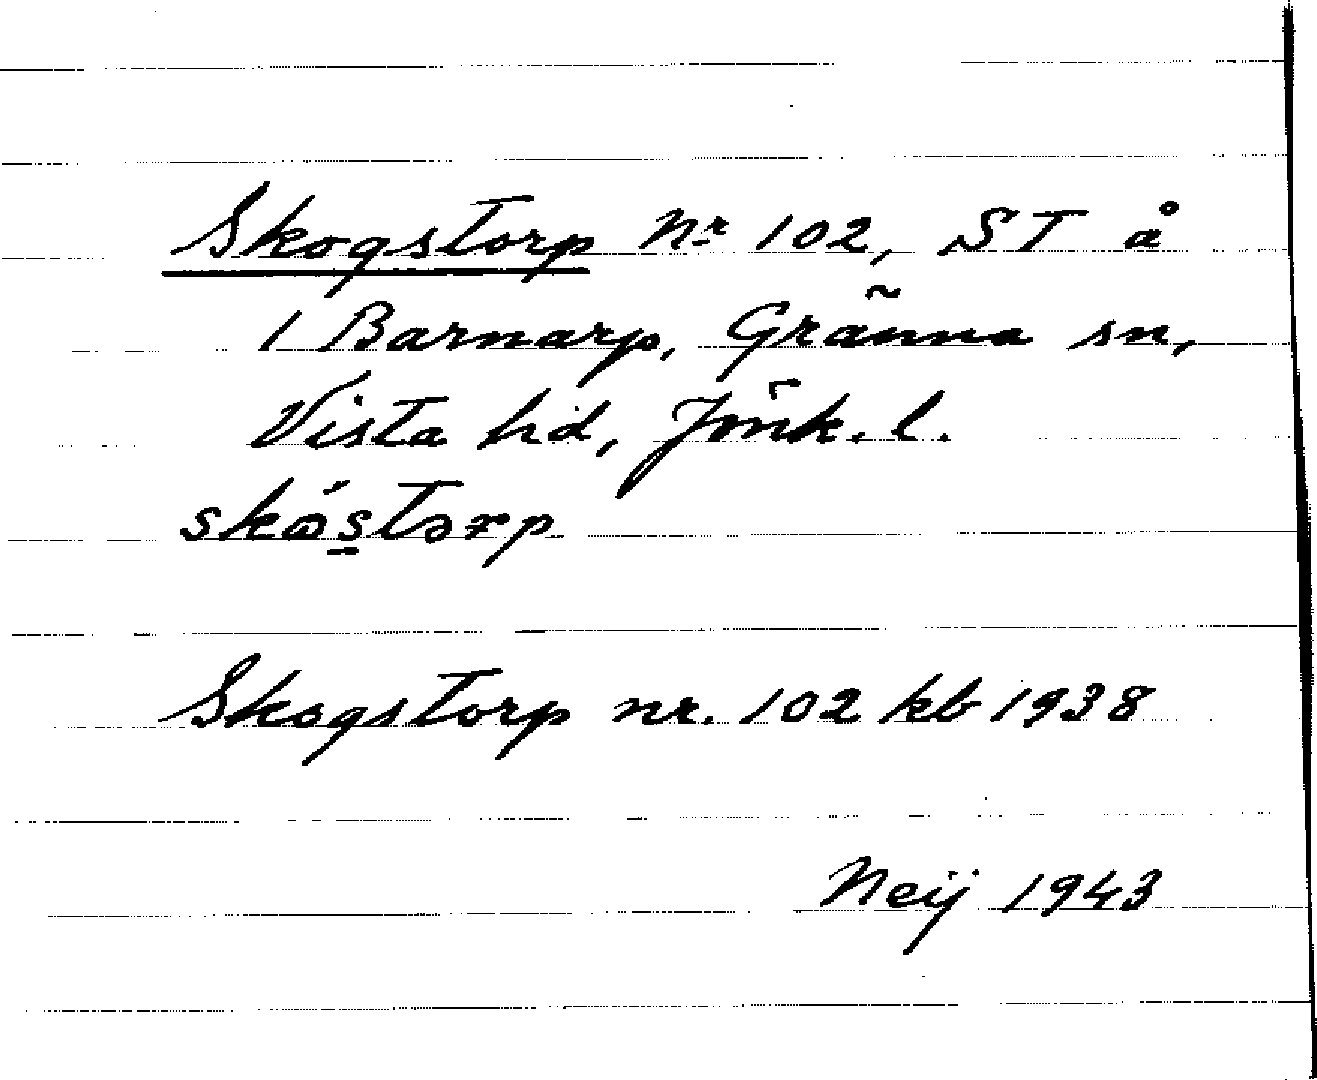 Skogstorp Nr 102, ST å
1 Barnarp, Gränna sn,
Vista hd, Jönk. l.
skɷ́s̱tərp
Skogstorp nr. 102 kb 1938
Neij 1943